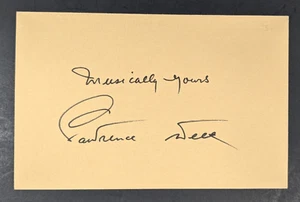 Musically Yours
Lawrence Welk